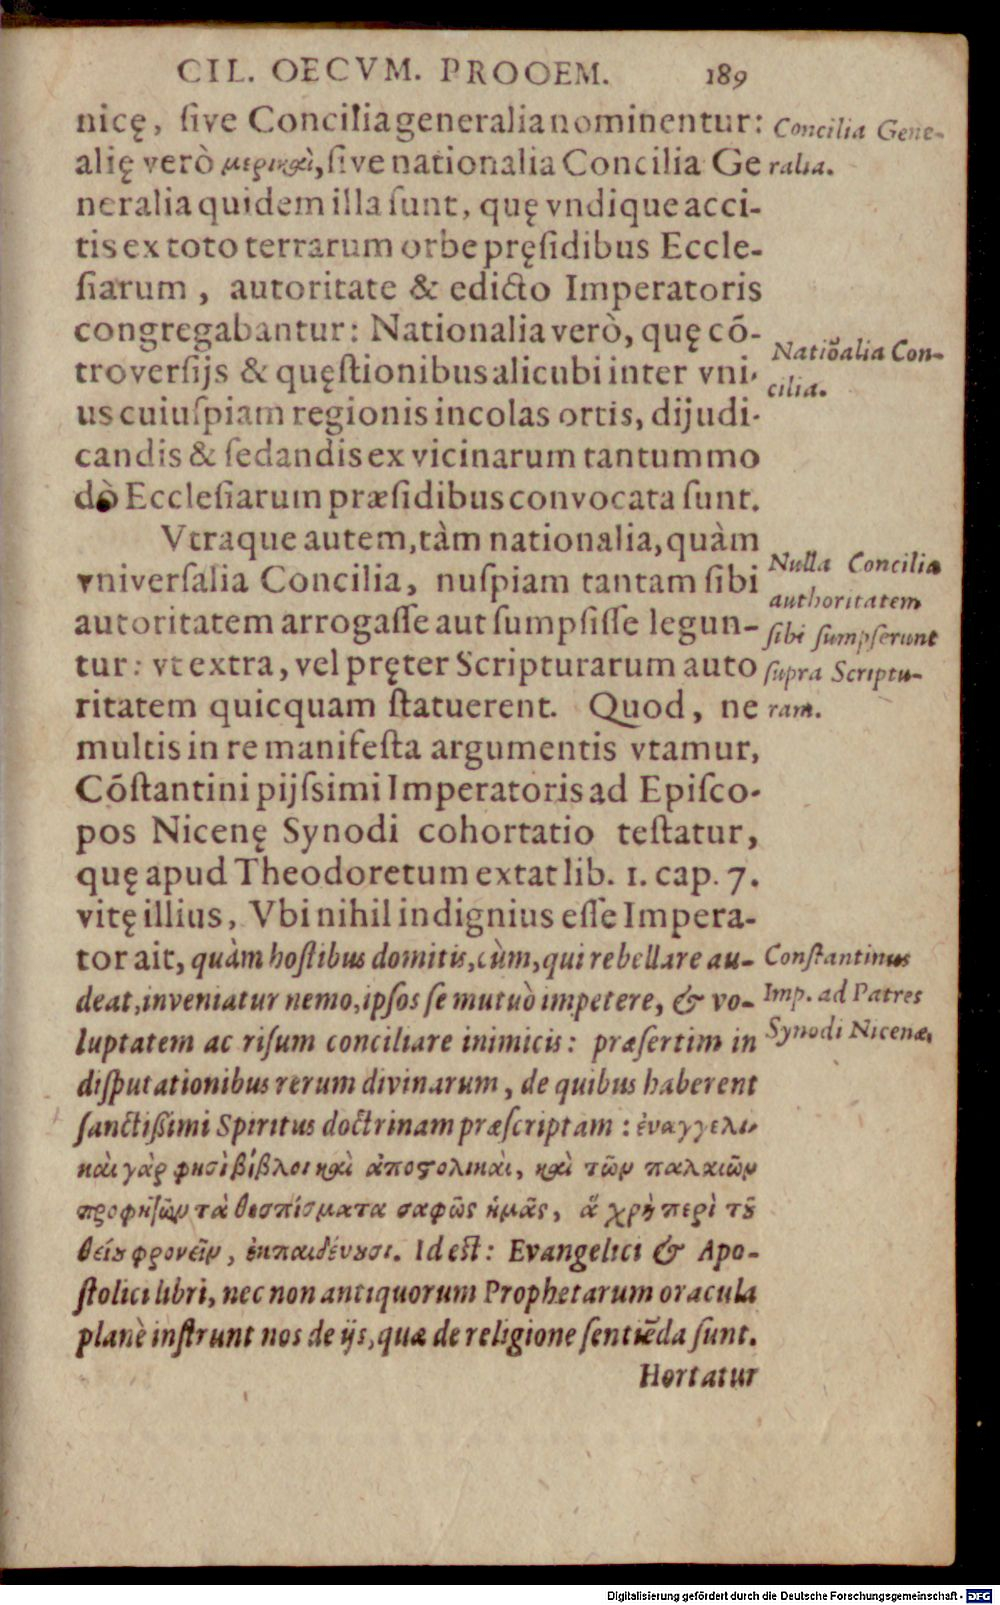 CIL. OECVM. PROOEM. 189
nicę, ſive Concilia generalia nominentur:
alię verò μερικαὶ, ſive nationalia Concilia Ge
neralia quidem illa ſunt, quę vndique acci-
tis ex toto terrarum orbe pręſidibus Eccle-
ſiarum, autoritate & edicto Imperatoris
congregabantur: Nationalia verò, quę cō-
troverſijs & quęſtionibus alicubi inter vni-
us cuiuſpiam regionis incolas ortis, dijudi-
candis & ſedandis ex vicinarum tantummo
dò Eccleſiarum præſidibus convocata ſunt.
Vtraque autem, tàm nationalia, quàm
vniverſalia Concilia, nuſpiam tantam ſibi
autoritatem arrogaſſe aut ſumpſiſſe legun-
tur: vt extra, vel pręter Scripturarum auto
ritatem quicquam ſtatuerent. Quod, ne
multis in re manifeſta argumentis vtamur,
Cōſtantini pijſsimi Imperatoris ad Epiſco-
pos Nicenę Synodi cohortatio teſtatur,
quę apud Theodoretum extat lib. 1. cap. 7.
vitę illius, Vbi nihil indignius eſſe Impera-
tor ait, quàm hoſtibus domitis, cùm, qui rebellare au-
deat, inveniatur nemo, ipſos ſe mutuò impetere, & vo-
luptatem ac riſum conciliare inimicis: præſertim in
diſputationibus rerum divinarum, de quibus haberent
ſanctiſsimi Spiritus doctrinam præſcriptam: ἐυαγγελι-
καὶ γὰρ φησὶ βίβλοι καὶ ἀποϛολικαὶ, καὶ τῶν παλαιῶν
προφητῶν τὰ θεσπίσματα σαφῶς ἡμᾶς, ἃ χρὴ περὶ τȣ͂
θείȣ φρονεῖν, ἐκπαιδέυȣσι. Id eſt: Evangelici & Apo-
ſtolici libri, nec non antiquorum Prophetarum oracula
planè inſtrunt nos de ijs, quæ de religione ſentiēda ſunt.
Hortatur
Concilia Gene-
ralia.
Natiōalia Con-
cilia.
Nulla Concilia
authoritatem
ſibi ſumpſerunt
ſupra Scriptu-
ram.
Conſtantinus
Imp. ad Patres
Synodi Nicenæ.
Digitalisierung gefördert durch die Deutsche Forschungsgemeinschaft - DFG